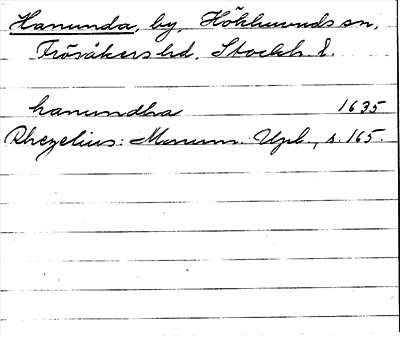 Hanunda, by, Hökhuvuds sn,
Frösåkers hd, Stockh. l.
hanundha 1635
Rhezelius: Monum. Upl., s. 165.